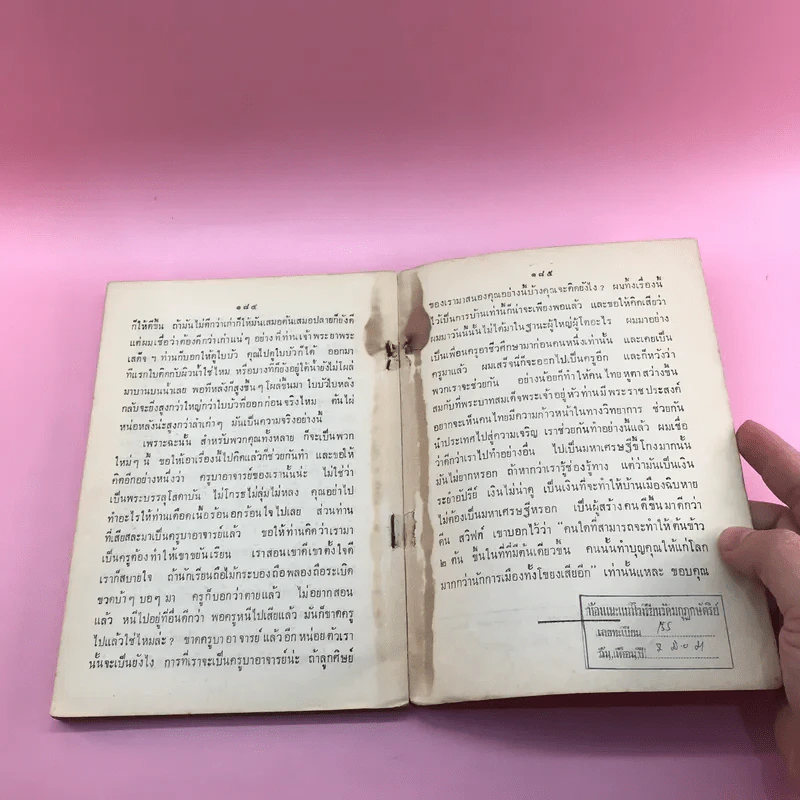 ๑๘๔
ก็ให้ดีขึ้น ถ้ามันไม่ดีกว่าเก่าก็ให้มันเสมอต้นเสมอปลายก็ยังดี
แต่ผมเชื่อว่าต้องดีกว่าเก่าแน่ๆ อย่างที่ท่านเจ้าพระยาพระ
เสด็จฯ ท่านก็บอกให้ดูใบบัว คุณไปดูใบบัวก็ได้ ออกมา
ที่แรกใบติดกับผิวน้ำใช่ไหม หรือบางทีก็ยังอยู่ใต้น้ำยังไม่โผล่
มาบานบนน้ำเลย พอทีหลังก็สูงขึ้นๆ โผล่ขึ้นมา ใบบัวใบหลัง
กลับจะยิ่งสูงกว่าใหญ่กว่าใบบัวที่ออกก่อนจริงไหม ต้นไผ่
หน่อหลังน่ะสูงกว่าลำเก่าๆ มันเป็นความจริงอย่างนี้
เพราะฉะนั้น สำหรับพวกคุณทั้งหลาย ก็จะเป็นพวก
ใหม่ๆ นี้ ขอให้เอาเรื่องนี้ไปคิดแล้วก็ช่วยกันทำ และขอให้
คิดอีกอย่างหนึ่งว่า ครูบาอาจารย์ของเรานั้นน่ะ ไม่ใช่ว่า
เป็นพระบรรลุโสดาบัน ไม่โกรธไม่ลุ่มไม่หลง คุณอย่าไป
ทำอะไรให้ท่านเดือดเนื้อร้อนอกร้อนใจไปเลย ส่วนท่าน
ที่เสียสละมาเป็นครูบาอาจารย์แล้ว ขอให้ท่านคิดว่าเรามา
เป็นครูต้องทำให้เขาขยันเรียน เราสอนเขาดีเขาตั้งใจดี
เราก็สบายใจ ถ้านักเรียนถือไม้กระบองถือพลองถือระเบิด
ขวดบ้าๆ บอๆ มา ครูก็บอกว่าตายแล้ว ไม่อยากสอน
แล้ว หนีไปอยู่ที่อื่นดีกว่า พอครูหนีไปเสียแล้ว มันก็ขาดครู
ไปแล้วใช่ไหมล่ะ? ขาดครูบาอาจารย์แล้วอีกหน่อยตัวเรา
นั้นจะเป็นยังไง การที่เราจะเป็นครูบาอาจารย์น่ะ ถ้าลูกศิษย์
๑๘๕
ของเรามาสนองคุณอย่างนี้บ้างคุณจะคิดยังไง? ผมทิ้งเรื่องนี้
ไว้เป็นการบ้านเท่านี้ก็น่าจะเพียงพอแล้ว และขอให้คิดเสียว่า
ผมมาวันนี้นั้นไม่ได้มาในฐานะผู้ใหญ่ผู้โตอะไร ผมมาอย่าง
เป็นเพื่อนครูอาชีวศึกษามาก่อนคนหนึ่งเท่านั้น และเคยเป็น
ครูมาแล้ว ผมเสร็จนี่ก็จะออกไปเป็นครูอีก และก็หวังว่า
พวกเราจะช่วยกัน อย่างน้อยก็ทำให้คนไทยหูตาสว่างขึ้น
สมกับที่พระบาทสมเด็จพระเจ้าอยู่หัวท่านมีพระราชประสงค์
อยากจะเห็นคนไทยมีความก้าวหน้าในทางวิทยาการ ช่วยกัน
นำประเทศไปสู่ความเจริญ เราช่วยกันทำอย่างนี้แล้ว ผมเชื่อ
ว่าดีกว่าเราไปทำอย่างอื่น ไปเป็นมหาเศรษฐีขี้โกงมากนั้น
มันไม่ยากหรอก ถ้าหากว่าเรารู้ช่องรู้ทาง แต่ว่ามันเป็นเงิน
ระยำอัปรีย์ เงินไม่น่าดู เป็นเงินที่จะทำให้บ้านเมืองฉิบหาย
ไม่ต้องเป็นมหาเศรษฐีหรอก เป็นผู้สร้างคนดีขึ้นมาดีกว่า
ดีน สวิฟต์ เขาบอกไว้ว่า “คนใดที่สามารถจะทำให้ต้นข้าว
๒ ต้น ขึ้นในที่ที่มีต้นเดียวขึ้น คนนั้นทำบุญคุณให้แก่โลก
มากกว่านักการเมืองทั้งโขยงเสียอีก” เท่านั้นแหละ ขอบคุณ
ห้องแนะแนวโรงเรียนวัดมกุฎกษัตริย์
เลขทะเบียน
วัน, เดือน, ปี